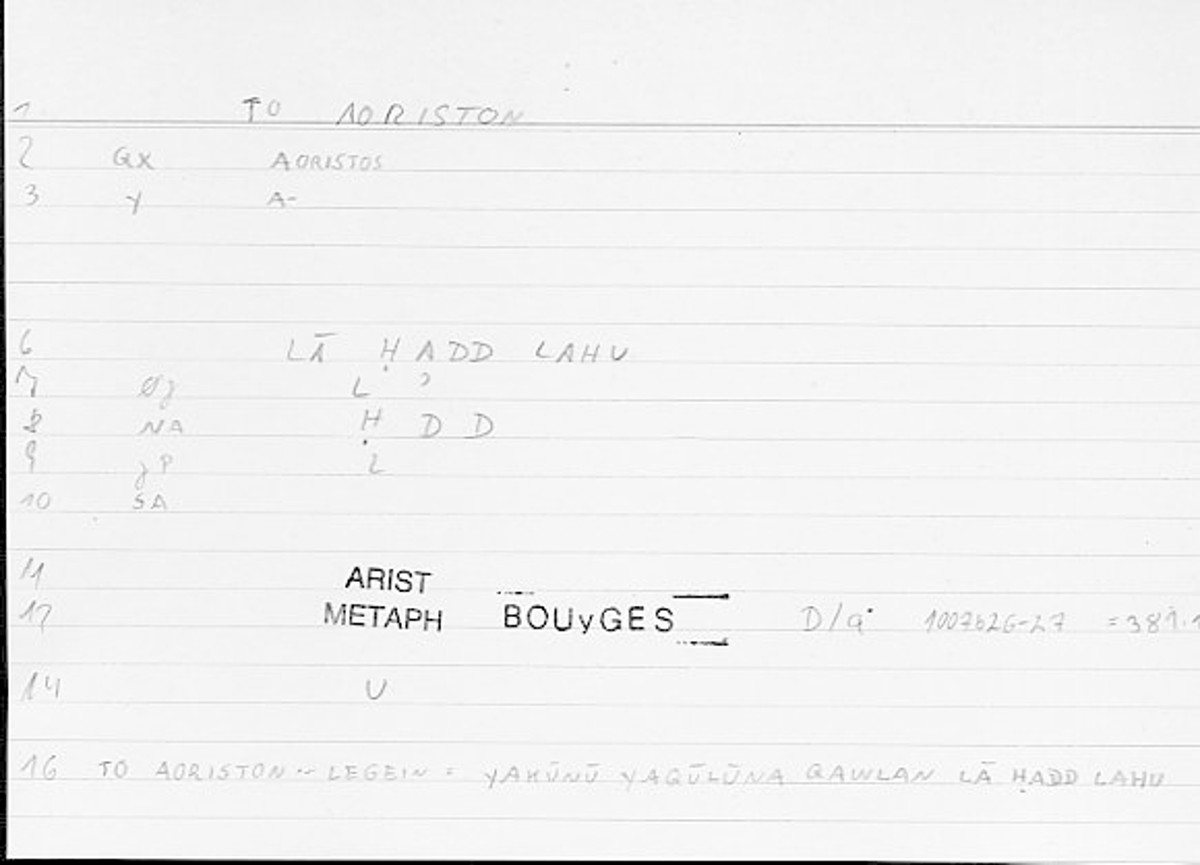 1 TO AORISTON
2 GX AORISTOS
3 Y A-
6 LĀ ḤADD LAHU
7 L ʾ
8 NA Ḥ D D
9 L
10 SA
11 ARIST
12 METAPH BOUyGES D/a 1007b26-27 =389.1
14 U
16 TO AORISTON ~ LEGEIN = YAKŪNŪ YAQŪLŪNA QAWLAN LĀ ḤADD LAHU